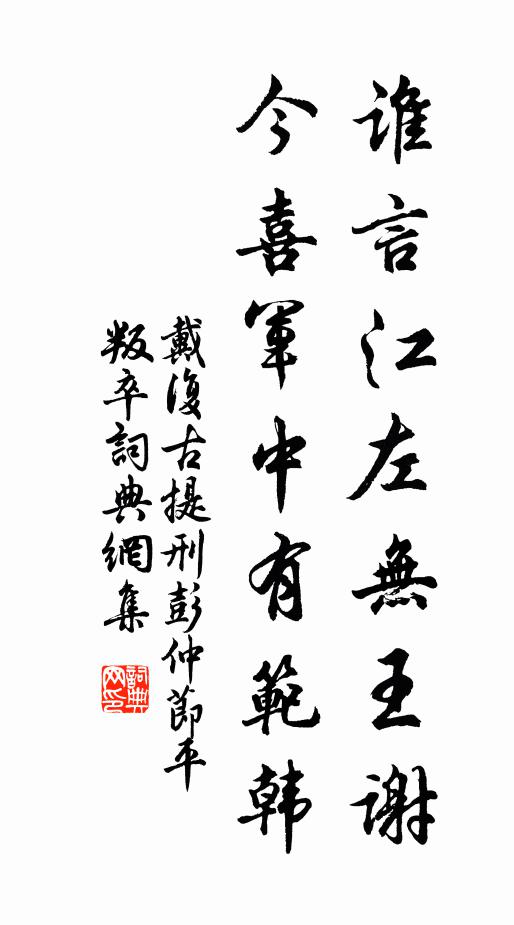 誰言江左無王謝
今喜軍中有範韓
戴復古提刑彭仲節平
叛卒詞典網集
詞典
网印